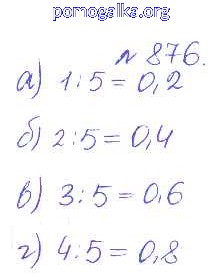 pomogalka.org
№ 876.
а) 1:5 = 0,2
б) 2:5 = 0,4
в) 3:5 = 0,6
г) 4:5 = 0,8